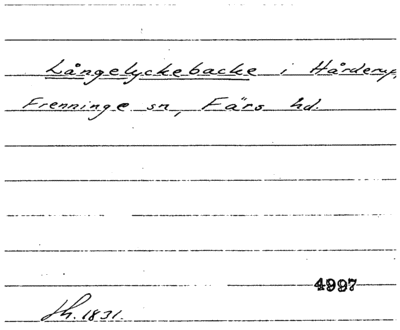 Långelyckebacke i Hårderup,
Frenninge sn, Färs hd.
4997
Lh. 1831.